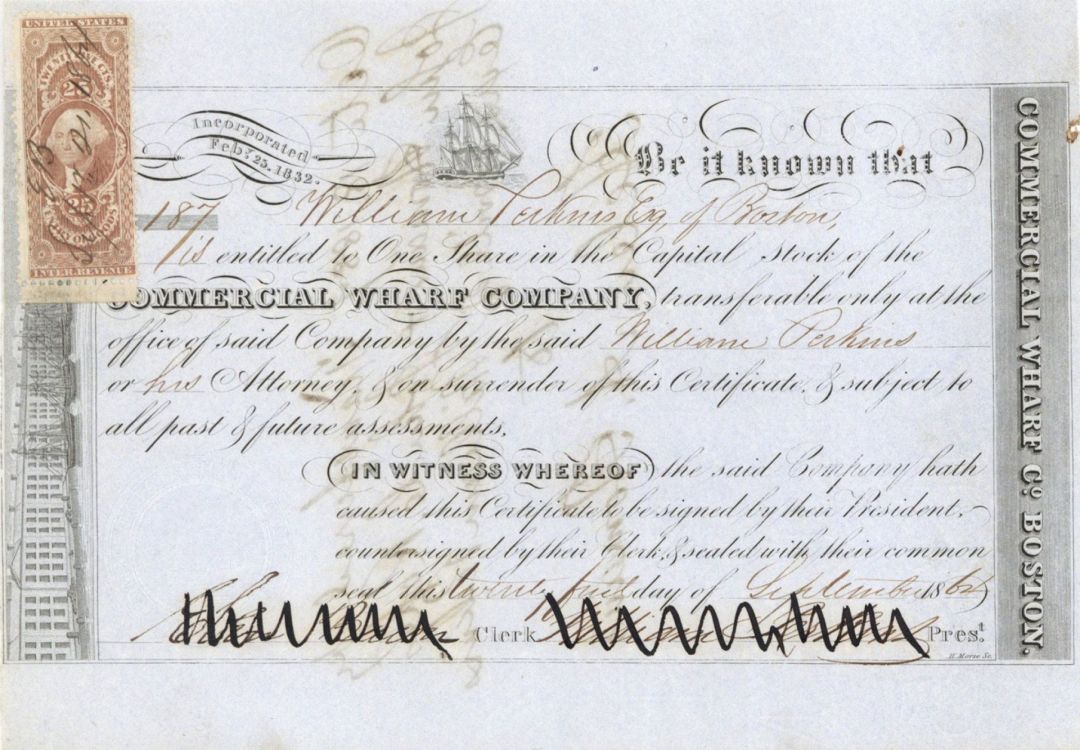 UNITED STATES
TWENTY FIVE CTS.
25
INTER. REVENUE
Incorporated
Feby. 25. 1832.
Be it known that
187 William Perkins Esq, of Boston,
is entitled to One Share in the Capital Stock of the
COMMERCIAL WHARF COMPANY, transferable only at the
office of said Company by the said William Perkins
or his Attorney, & on surrender of this Certificate, & subject to
all past & future assessments.
IN WITNESS WHEREOF the said Company hath
caused this Certificate to be signed by their President,
countersigned by their Clerk, & sealed with their common
seal this twenty first day of September 1864
Clerk Prest.
W. Morse Sc.
COMMERCIAL WHARF Co. BOSTON.